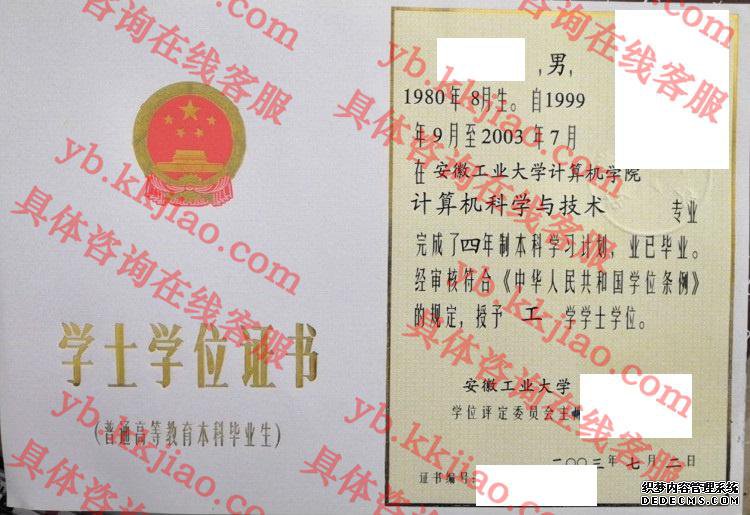 学士学位证书
(普通高等教育本科毕业生)
,男,
1980年 8月生。自1999
年9月至2003年7月
在 安徽工业大学计算机学院
计算机科学与技术 专业
完成了四年制本科学习计划,业已毕业。
经审核符合《中华人民共和国学位条例》
的规定,授予 工 学学士学位。
安徽工业大学
学位评定委员会主
二〇〇三年七月二日
证书编号:
具体咨询在线客服
yb.kkjiao.com
具体咨询在线客服
yb.kkjiao.com
具体咨询在线客服
yb.kkjiao.com
具体咨询在线客服
yb.kkjiao.com
具体咨询在线客服
织梦内容管理系统
DEDECMS.COM